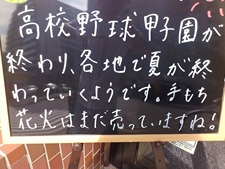 高校野球甲子園が
終わり、各地で夏が終
わっていくようです。手もち
花火はまだ売っていますね!